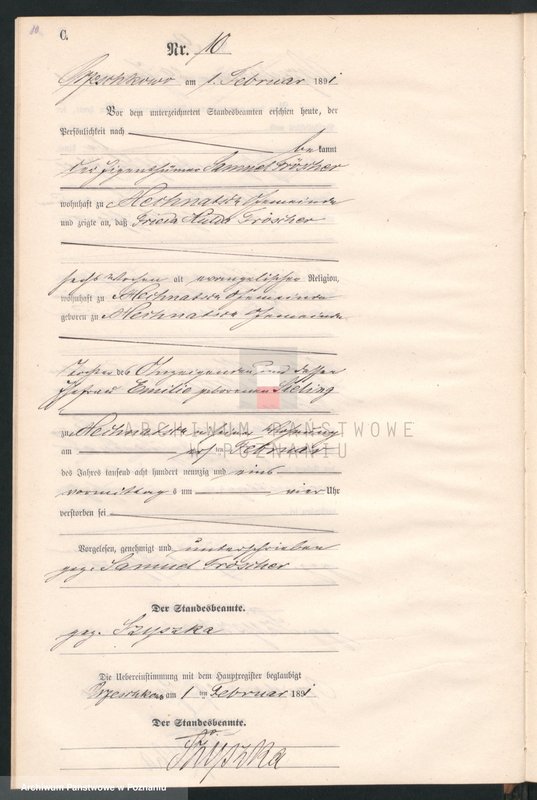 10
C.
Nr. 10
am 1. Februar 1891
Vor dem unterzeichneten Standesbeamten erschien heute, der
Persönlichkeit nach
be kannt
der Eigenthümer Samuel Tröscher
wohnhaft zu Gemeinde
und zeigte an, daß Frieda Hulda Tröscher
sechs Wochen alt evangelischer Religion,
wohnhaft zu Gemeinde
geboren zu Gemeinde
Tochter des Anzeigenden und dessen
Ehefrau Emilie geborenen
zu in seiner Wohnung
am ersten Februar
des Jahres tausend acht hundert neunzig und eins
vormittag s um vier Uhr
verstorben sei
Vorgelesen, genehmigt und unterschrieben
gez. Samuel Tröscher
Der Standesbeamte.
gez. Szyszka
Die Uebereinstimmung mit dem Hauptregister beglaubigt
am 1 ten Februar 1891
Der Standesbeamte.
Szyszka
ARCHIWUM PAŃSTWOWE
W POZNANIU
Archiwum Państwowe w Poznaniu